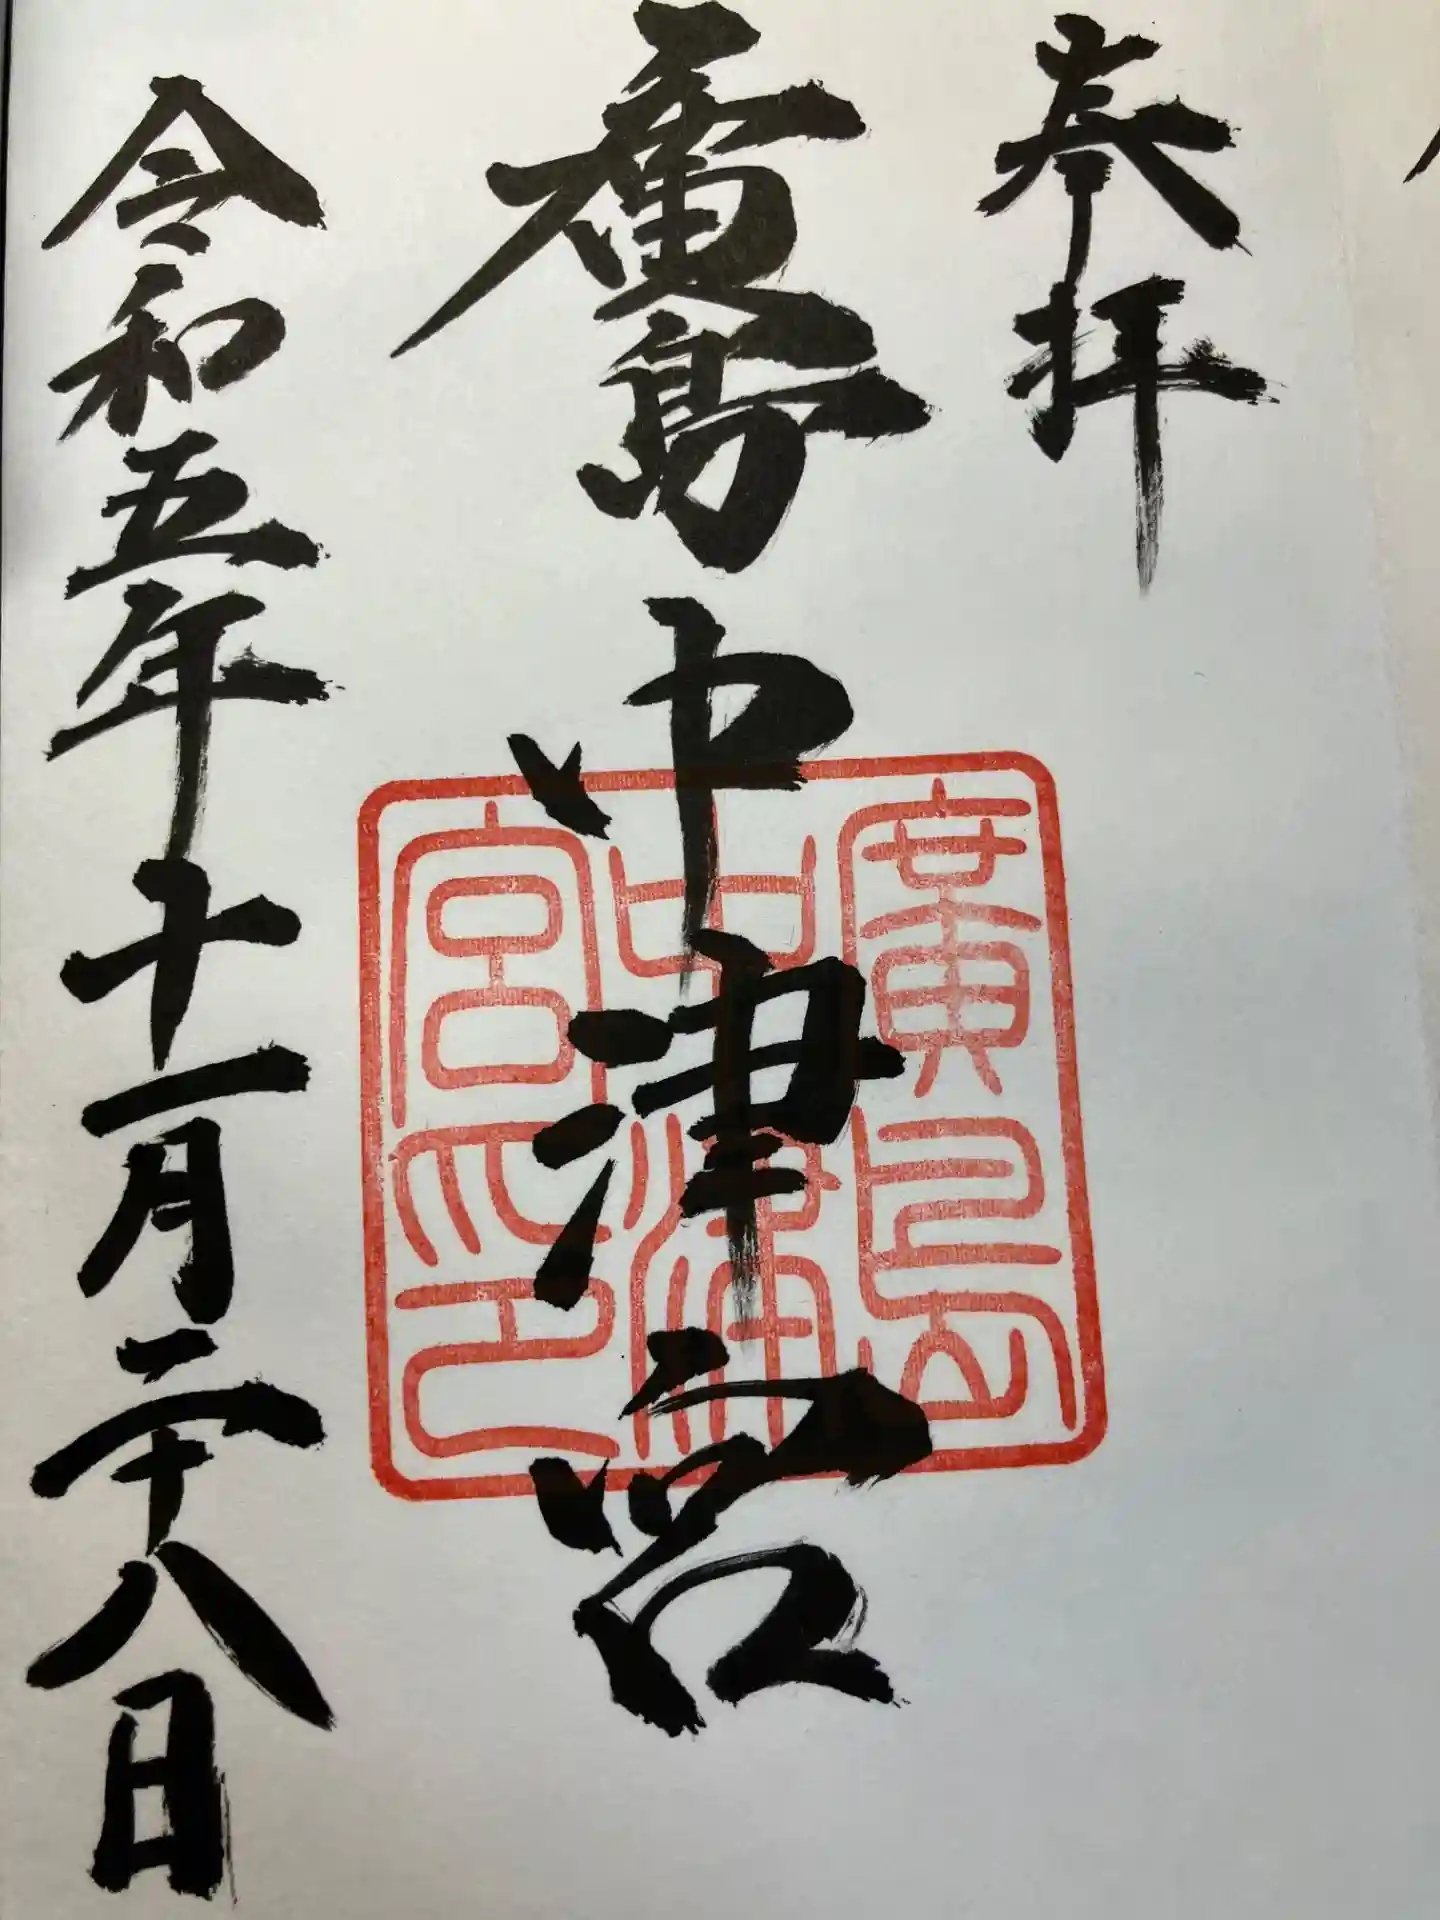 奉拝
廣島中津宮
令和五年十一月二十八日
廣島
中津
宮印